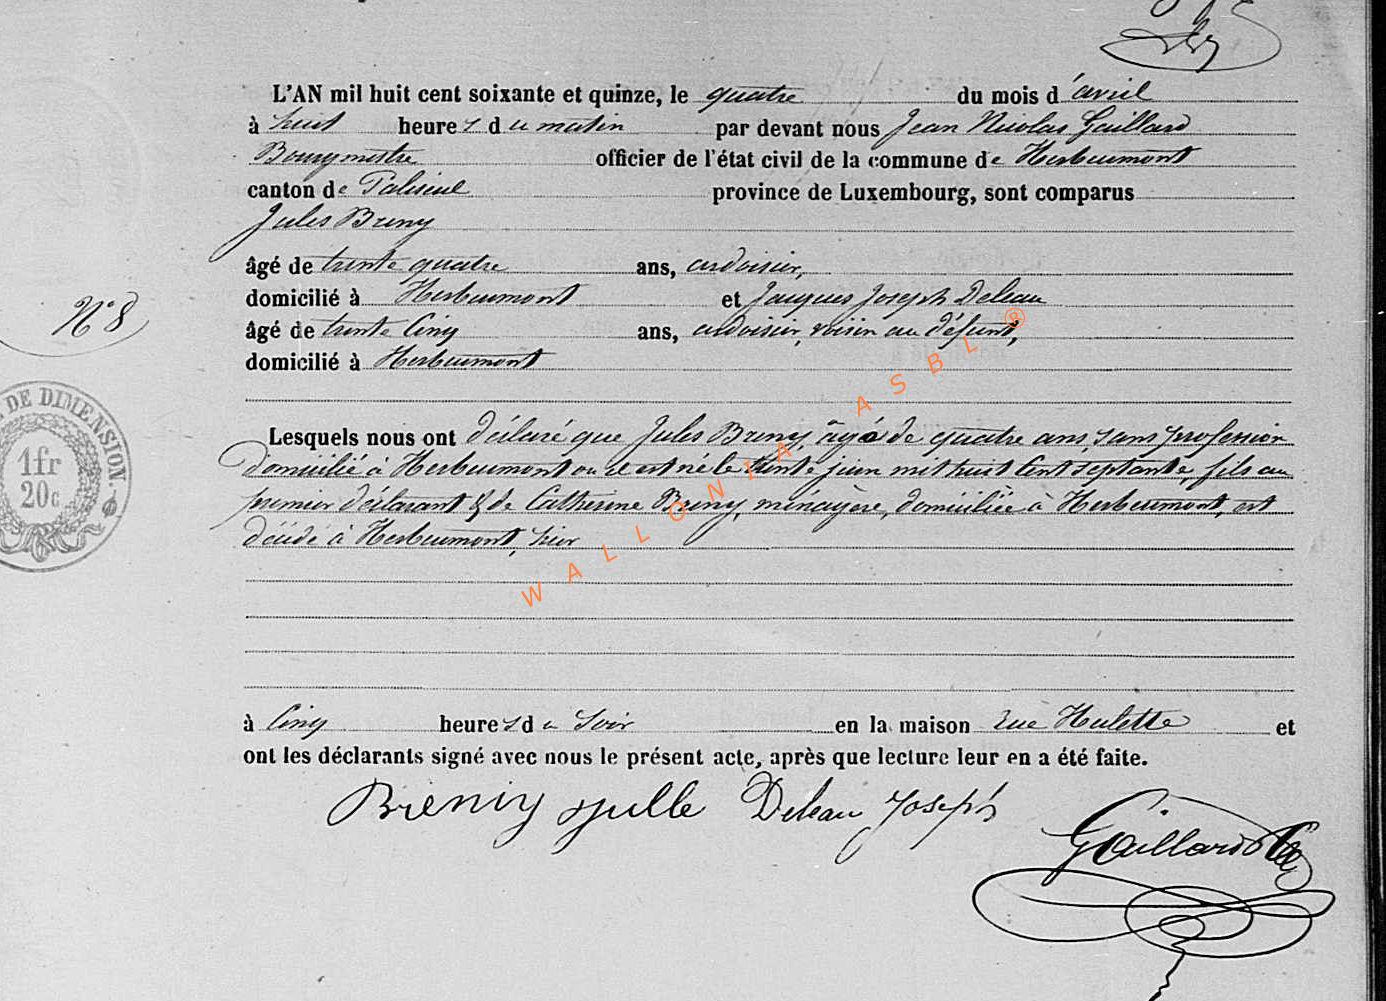 L'AN mil huit cent soixante et quinze, le quatre du mois d'avril
à huit heures du matin par devant nous Jean Nicolas Gaillard
Bourgmestre officier de l'état civil de la commune de Herbeumont
canton de Paliseul province de Luxembourg, sont comparus
Jules Breny
âgé de trente quatre ans, ardoisier,
domicilié à Herbeumont et Jacques Joseph Deleau
N° 8
âgé de trente Cinq ans, ardoisier, voisin au défunt,
domicilié à Herbeumont
DE DIMENSION.
1fr
20c
Lesquels nous ont déclaré que Jules Breny âgé de quatre ans, sans profession
domicilié à Herbeumont où il est né le trente juin mil huit Cent septante, fils au
premier déclarant & de Catherine Breny, ménagère, domiciliée à Herbeumont, est
décédé à Herbeumont, hier
à Cinq heures du Soir en la maison rue Hulette et
ont les déclarants signé avec nous le présent acte, après que lecture leur en a été faite.
Breniy Julle Deleau Joseph
Gaillard
WALLONIA ASBL ®